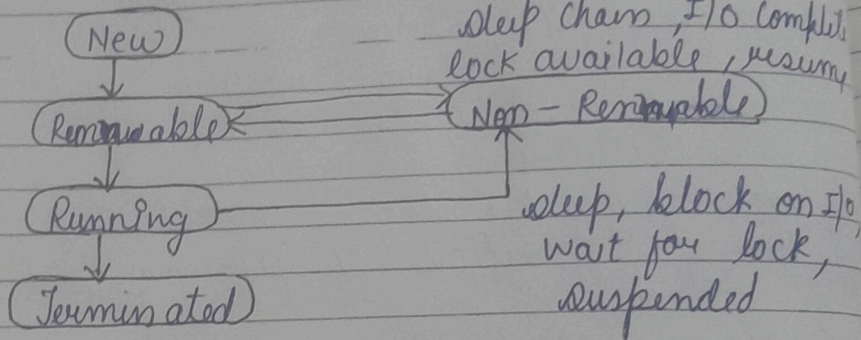 New
sleep chain, I/O complet
lock available, resum
Remnuable
Non - Remnuable
Running
sleep, block on I/O,
wait for lock,
suspended
Terminated